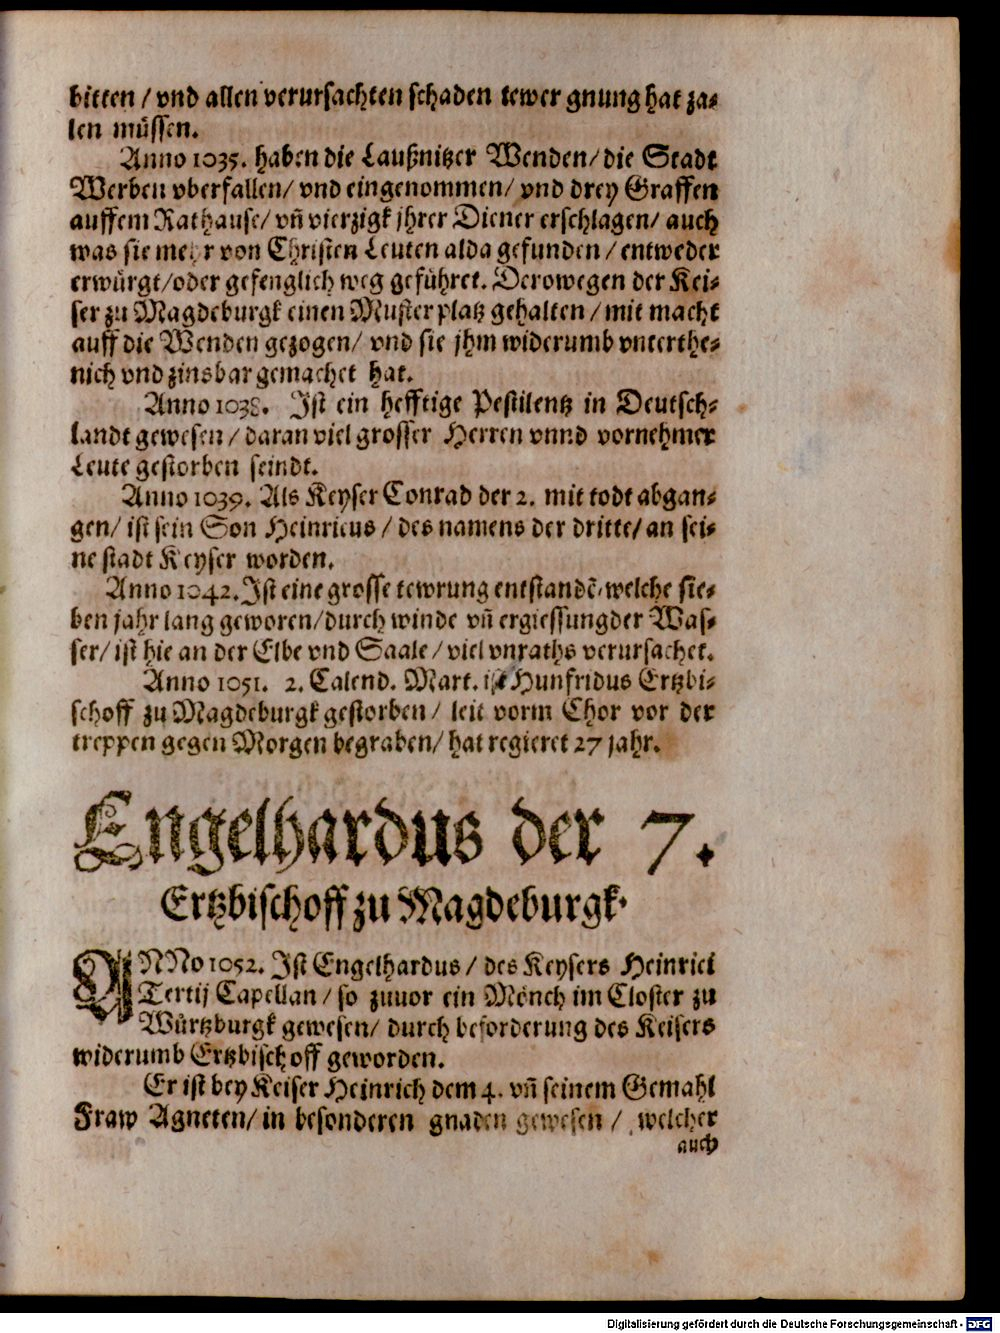 bitten / vnd allen verursachten schaden tewer gnung hat za⸗
len müssen.
Anno 1035. haben die Laußnitzer Wenden/ die Stadt
Werben vberfallen/ vnd eingenommen/ vnd drey Graffen
auffem Rathause/ vñ vierzigk jhrer Diener erschlagen/ auch
was sie mehr von Christen Leuten alda gefunden / entweder
erwürgt/oder gefenglich weg geführet. Derowegen der Kei⸗
ser zu Magdeburgk einen Musterplatz gehalten / mit macht
auff die Wenden gezogen/ vnd sie jhm widerumb vnterthe⸗
nich vnd zinsbar gemachet hat.
Anno 1038. Ist ein hefftige Pestilentz in Deutsch⸗
landt gewesen / daran viel grosser Herren vnnd vornehmer
Leute gestorben seindt.
Anno 1039. Als Keyser Conrad der 2. mit todt abgan⸗
gen/ ist sein Son Heinricus / des namens der dritte/ an sei⸗
ne stadt Keyser worden.
Anno 1042. Ist eine grosse tewrung entstandē/welche sie⸗
ben jahr lang geworen/durch winde vñ ergiessung der Was⸗
ser/ ist hie an der Elbe vnd Saale / viel vnraths verursachet.
Anno 1051. 2. Calend. Mart. ist Hunfridus Ertzbi⸗
schoff zu Magdeburgk gestorben / leit vorm Chor vor der
treppen gegen Morgen begraben/ hat regieret 27 jahr.
Engelhardus der 7.
Ertzbischoff zu Magdeburgk.
ANNo 1052. Ist Engelhardus / des Keysers Heinrici
Tertij Capellan / so zuuor ein Mönch im Closter zu
Würtzburgk gewesen/ durch beforderung des Keisers
widerumb Ertzbischoff geworden.
Er ist bey Keiser Heinrich dem 4. vñ seinem Gemahl
Fraw Agneten/ in besonderen gnaden gewesen / welcher
auch
Digitalisierung gefördert durch die Deutsche Forschungsgemeinschaft - DFG